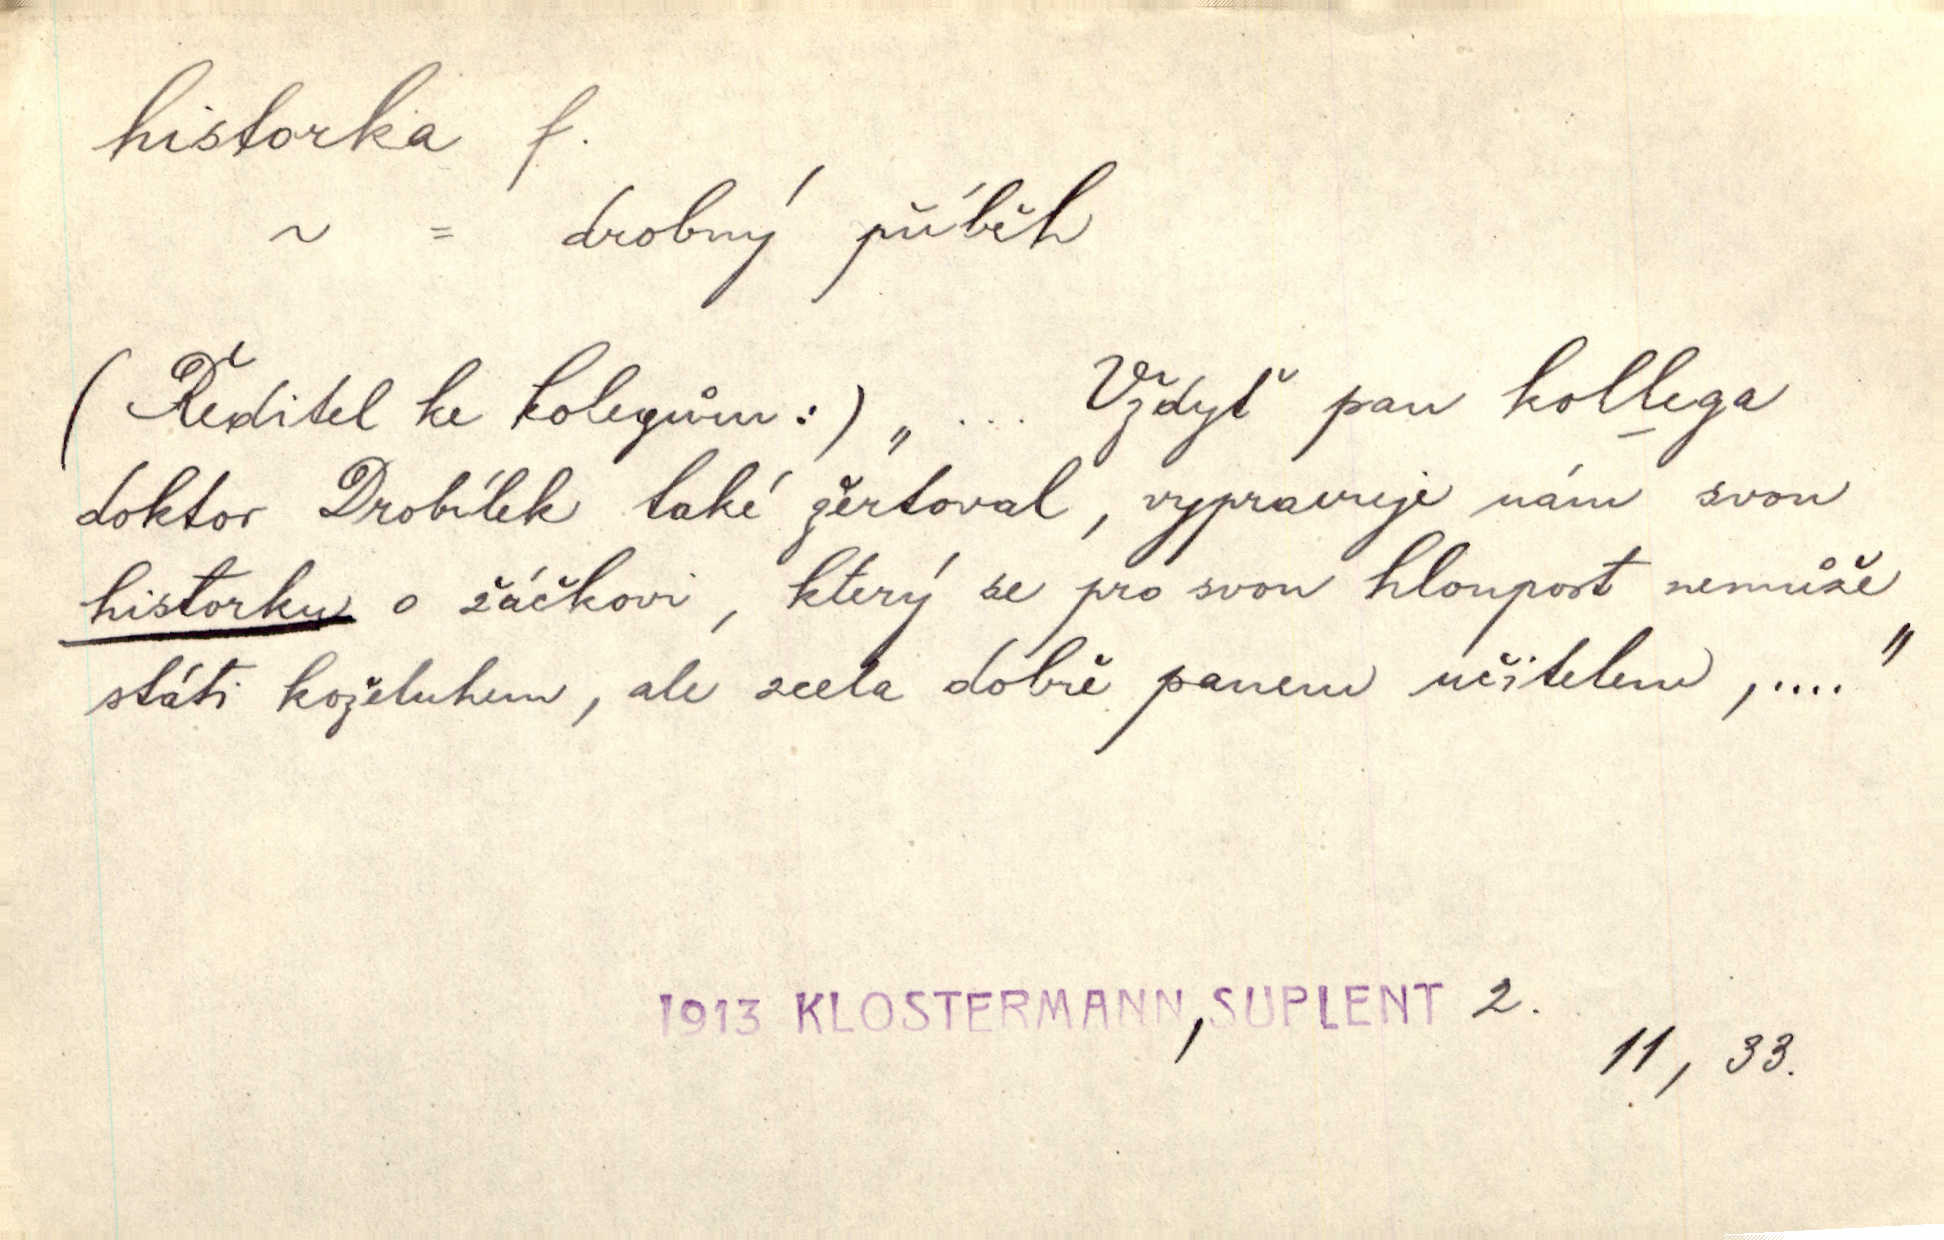 historka f.
~ = drobný příběh
(Ředitel ke kolegům:) „ ... Vždyť pan kollega
doktor Drobílek také žertoval, vypravuje nám svou
historku o žáčkovi, který se pro svou hloupost nemůže
státi koželuhem, ale zcela dobře panem učitelem, ...."
1913 KLOSTERMANN, SUPLENT 2.
11, 33.